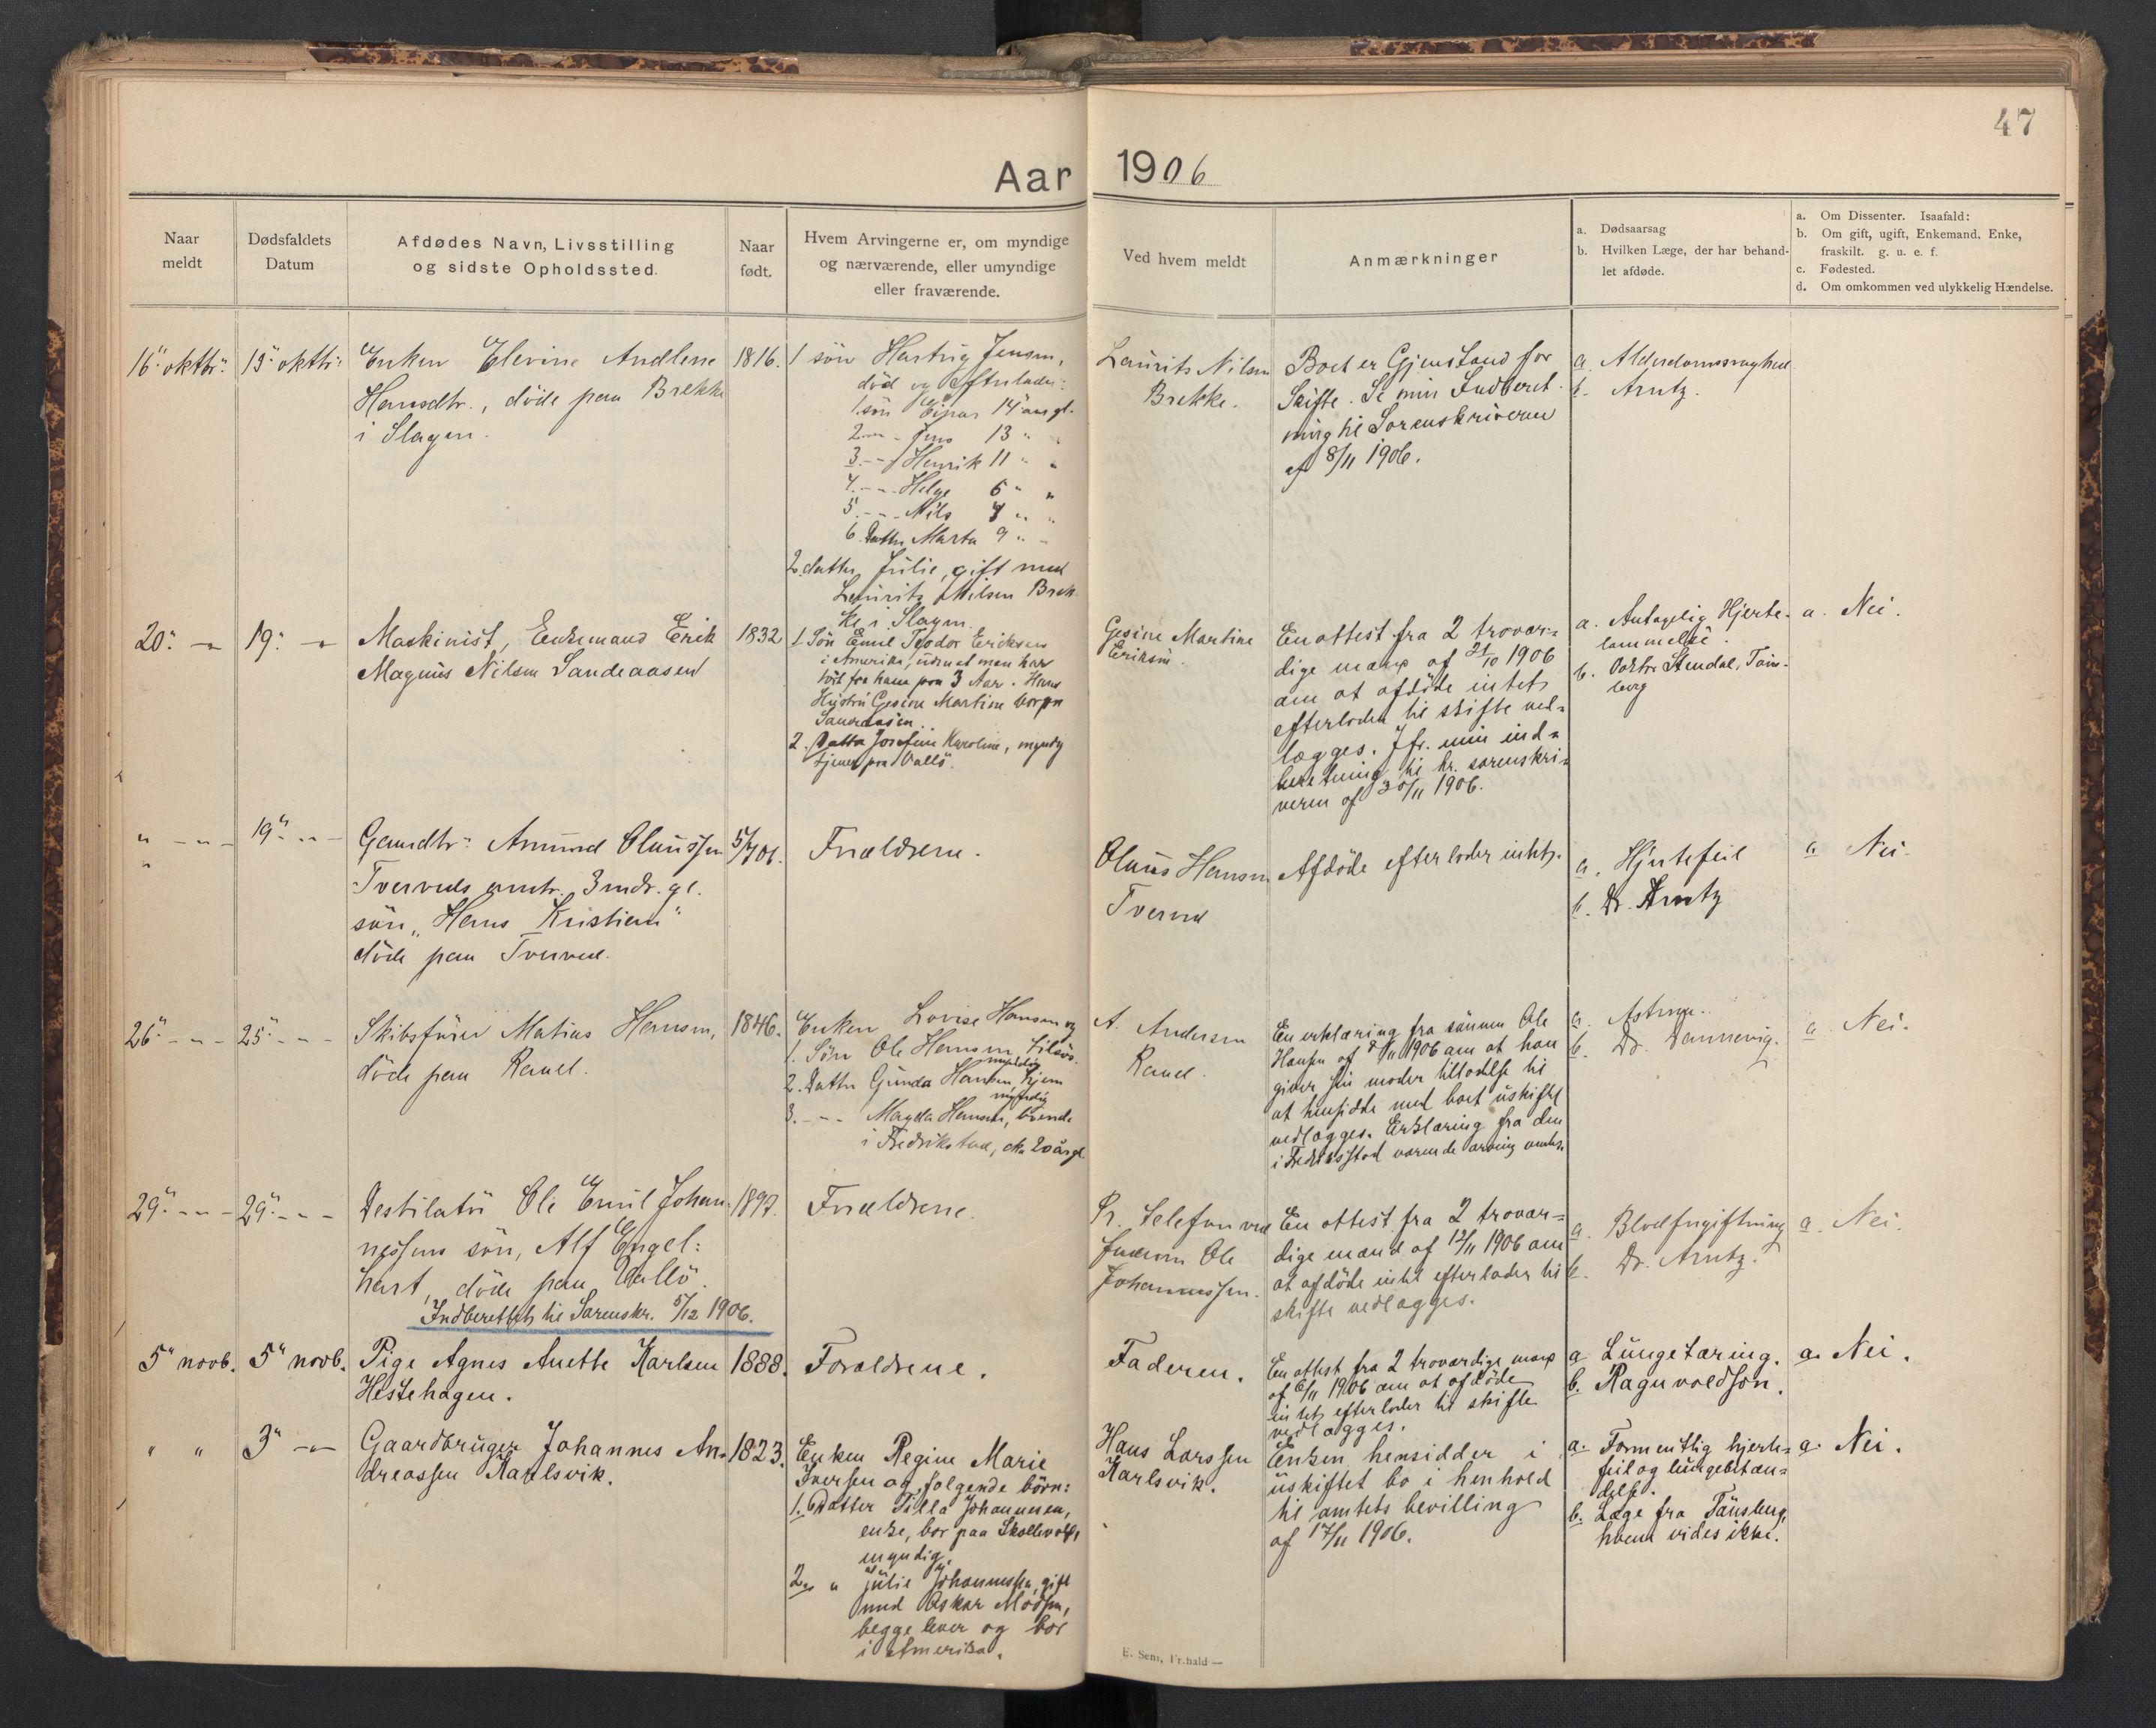 47
Aar 1906
Naar
meldt
Dødsfaldets
Datum
Afdødes Navn, Livsstilling
og sidste Opholdssted.
Naar
født.
Hvem Arvingerne er, om myndige
og nærværende, eller umyndige
eller fraværende.
Ved hvem meldt
Anmærkninger
a. Dødsaarsag
b. Hvilken Læge, der har behand-
let afdøde.
a. Om Dissenter. Isaafald:
b. Om gift, ugift, Enkemand, Enke,
fraskilt. g. u. e. f.
c. Fødested.
d. Om omkommen ved ulykkelig Hændelse.
16" oktbr:
15" oktbr:
Enken Elevine Andlene
Hansdtr., døde paa Brekke
i Slagen.
1816.
1 søn Hartvig Jensen,
død og efterlader:
1. søn Einar 14 aar gl.
2. -- Jens 13 " "
3. -- Henrik 11 " "
4. -- Helge 6 " "
5. -- Nils 4 " "
6. Datter Marta 9 " "
2. datter Julie, gift med
Laurits Nilsen Brek-
ke i Slagen.
Laurits Nilsen
Brekke.
Boet er Gjenstand for
Skifte. Se min Indberet-
ning til Sorenskriveren
af 8/11 1906.
a. Alderdomssvaghed.
b. Arntz.
20: -"-
19: -"-
Maskinist, Enkemand Erik
Magnus Nilsen Sandeaasen
1832
1. Søn Emil Teodor Eriksen
i Amerika, uden at man har
hørt fra ham paa 3 Aar. Hans
Hustru Gesine Martine bor paa
Sandeaasen.
2. Datter Josefine Karoline, myndig
tjener paa Vallø.
Gesine Martine
Eriksen.
En attest fra 2 trovær-
dige mænd af 21/10 1906
om at afdøde intet
efterlader til skifte ved-
lægges. Jfr. min ind-
beretning til hr. sorenskri-
veren af 30/11 1906.
a. Antagelig Hjerte-
lammelse.
b. Doktor Stendal, Tøns-
berg
a. Nei.
" -"-
19" -"-
Gaardbr: Amund Olaussen
Tverveds umtr. 3 mdr. gl.
søn "Hans Kristian"
døde paa Tverved.
5/7 06.
Forældrene.
Olaus Hansen
Tverved
Afdøde efterlader intet.
a. Hjertefeil
b. Dr. Arntz
a Nei.
26" -"-
25" -"-
Skibsfører Matias Hansen,
døde paa Ramel.
1846.
Enken Lovise Hansen og
1. Søn Ole Hansen, tilsøs.
myndig
2. Datter Gunda Hansen, hjem
myndig
3. -- Magda Hansen, boende
i Fredrikstad, cka 20 år gl.
A. Andersen
Ramel.
En erklæring fra sønnen Ole
Hansen af 8/11 1906 om at han
giver sin moder tilladelse til
at hensidde med boet uskiftet
vedlægges. Erklæring fra den
i Fredriksstad værende arving
a. Astma.
b. Dr. Dannevig.
a. Nei.
29" -"-
29" -"-
Destilatør Ole Emil Johan-
nessens søn, Alf Engel-
hart, døde paa Vallø.
Indberettet til Sorenskr. 5/12 1906.
1897.
Forældrene.
Pr. Telefon ved
Faderen Ole
Johannessen.
En attest fra 2 trovær-
dige mænd af 12/11 1906 om
at afdøde intet efterlader til
skifte vedlægges.
a. Blodforgiftning
b. Dr. Arntz.
a. Nei.
5" novb.
5" novb.
Pige Agnes Anette Karlsen
Hestehagen.
1888.
Forældrene.
Faderen.
En attest fra 2 troværdige mænd
af 6/11 1906 om at afdøde
intet efterlader til skifte
vedlægges.
a Lungetæring.
b. Ragnvaldson.
a. Nei.
" "
3" -"-
Gaardbruger Johannes An-
dreassen Karlsvik.
1823.
Enken Regine Marie
Iversen og følgende børn:
1. Datter Tilla Johannesen,
enke, bor paa
myndig.
2. " Julie Johannessen, gift
med Oskar Madsen,
begge lever og bor
i Amerika.
Hans Larssen
Karlsvik.
Enken hensidder i
uskiftet bo i henhold
til amtets bevilling
af 17/11 1906.
a. Formentlig hjerte-
feil og lungebetæn-
delse.
b. Læge fra Tønsberg,
hvem vides ikke.
a. Nei.
E. Sem, Fr.hald —